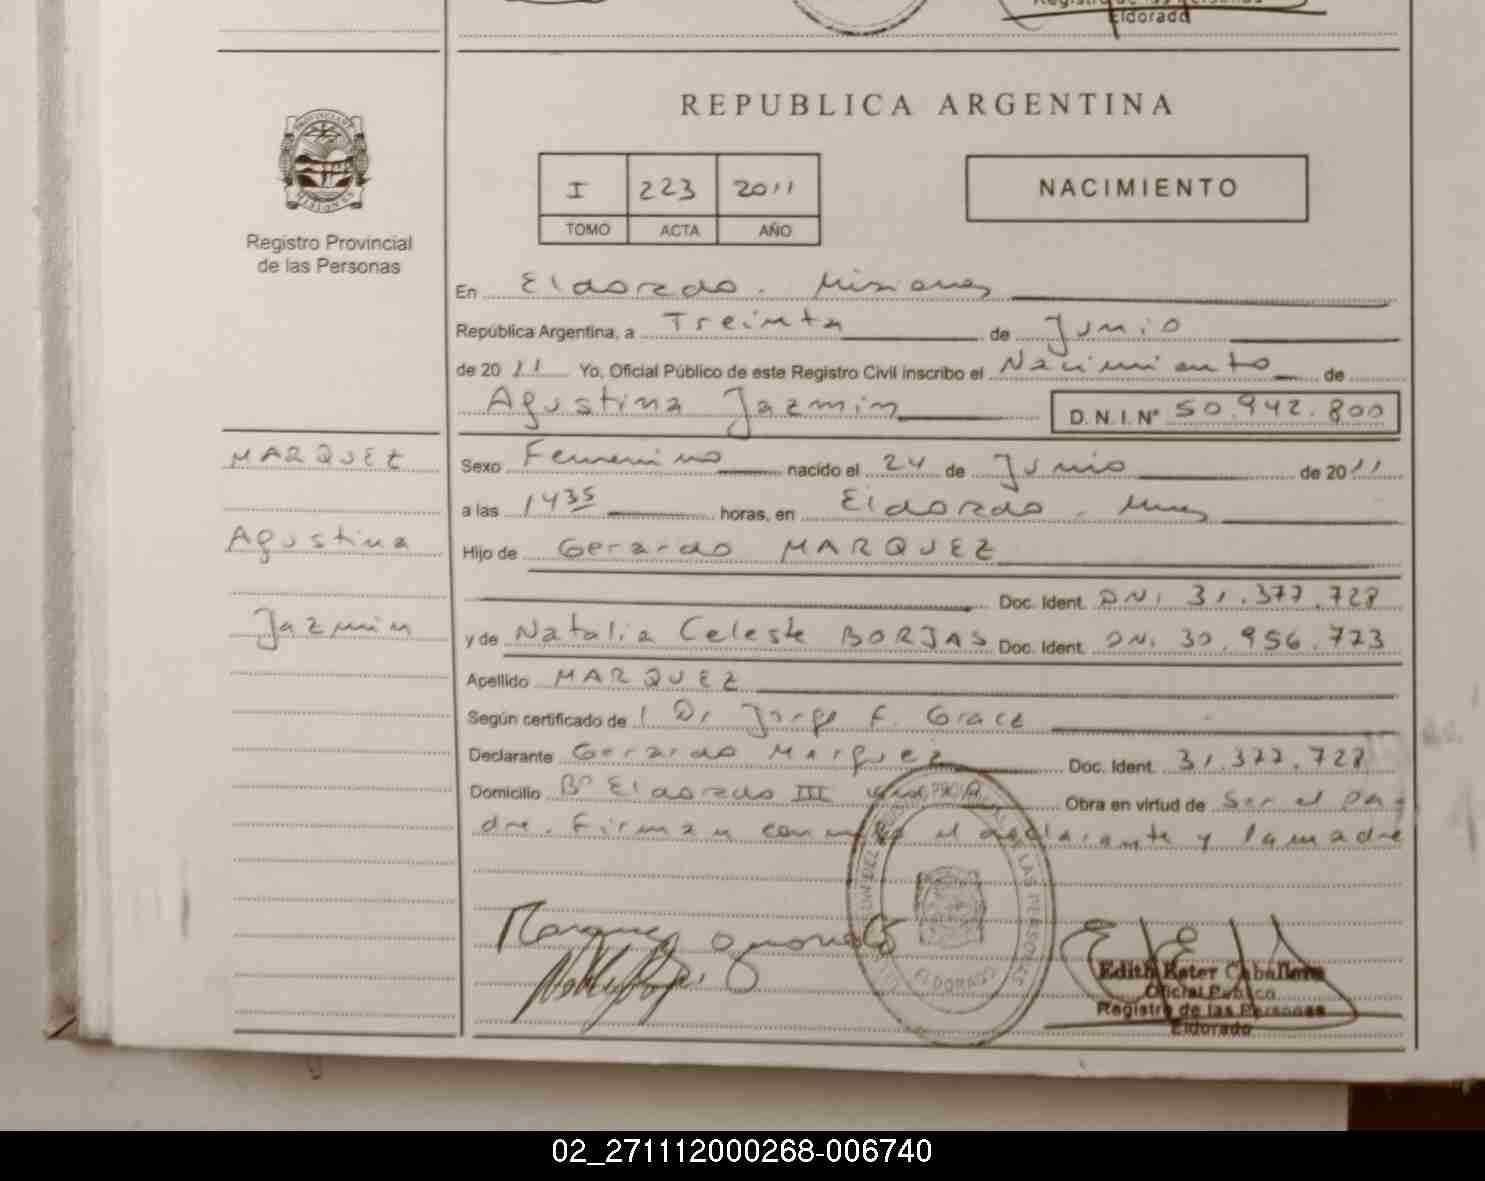 Registro de las Personas
Eldorado
REPUBLICA ARGENTINA
I 223 2011
TOMO ACTA AÑO
NACIMIENTO
Registro Provincial
de las Personas
En Eldorado. Misiones
República Argentina, a Treinta de Junio
de 2011 Yo, Oficial Público de este Registro Civil inscribo el Nacimiento de
Agustina Jazmin D.N.I.Nº 50.942.800
MARQUEZ
Agustina
Jazmin
Sexo Femenino nacido el 24 de Junio de 2011
a las 1435 horas, en Eldorado. Mnes
Hijo de Gerardo MARQUEZ
Doc. Ident. DNI 31.377.728
y de Natalia Celeste BORJAS Doc. Ident. DNI 30.956.723
Apellido MARQUEZ
Según certificado de Dr Jorge F.
Declarante Gerardo Marquez Doc. Ident. 31.377.728
Domicilio Bº Eldorado III Obra en virtud de Ser el Pa
dre. Firman conmigo el declarante y la madre
Marquez
ELDORADO
Edith Ester Caballero
Oficial Público
Registro de las Personas
Eldorado
02_271112000268-006740